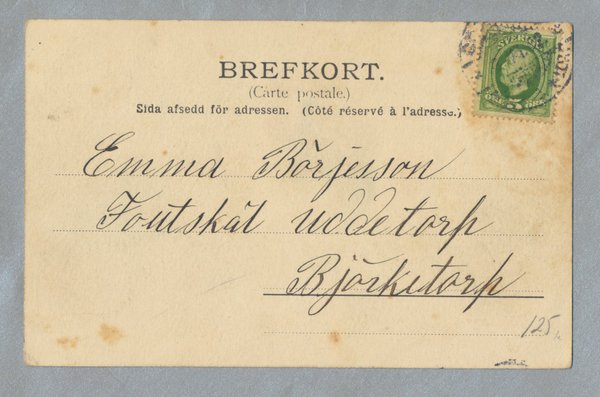 BREFKORT.
(Carte postale.)
Sida afsedd för adressen. (Côté réservé à l'adresse.)
SVERIGE
5 ÖRE
Emma Börjesson
Toutskäl uddetorp
Björketorp
125